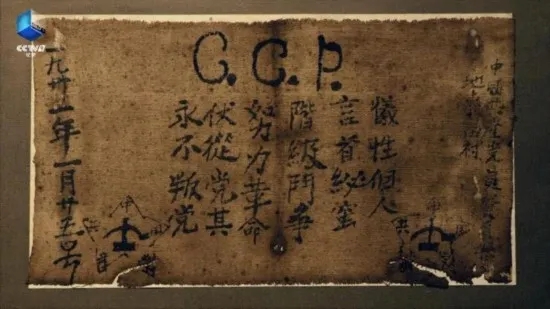 CCTV
C.C.P.
中國共產党員
地点 村
犠性個人
言首秘蜜
階級鬥争
努力革命
伏從党其
永不叛党
一九卅一年一月廿五号